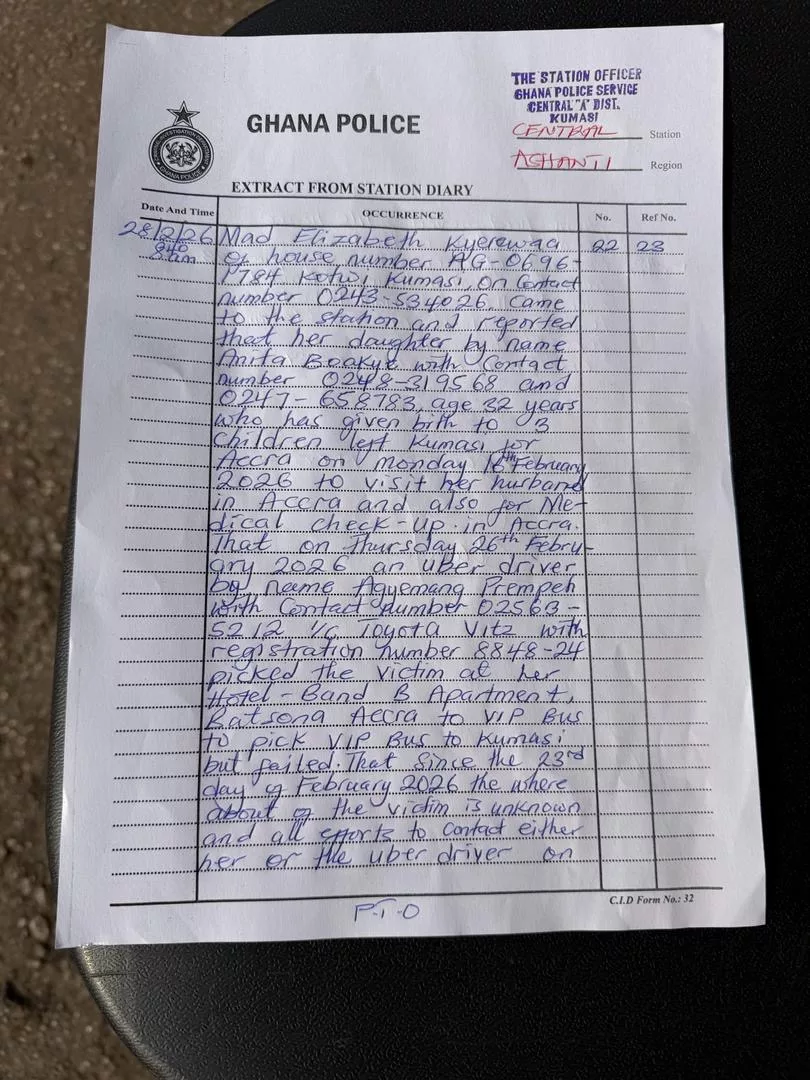 THE STATION OFFICER
GHANA POLICE SERVICE
CENTRAL "A" DIST.
KUMASI
GHANA POLICE
CENTRAL Station
ASHANTI Region
EXTRACT FROM STATION DIARY
Date And Time OCCURRENCE No. Ref No.
28/2/26 Mad Elizabeth Kyerewaa 22 23
8am of house number AG-0696-
1784 Kotwi, Kumasi, on Contact
number 0243-534026, Came
to the station and reported
that her daughter by name
Anita Boakye with Contact
number 0248-319568 and
0247-658783, age 32 years
who has given birth to 3
Children left Kumasi for
Accra on monday 16th February
2026 to visit her husband
in Accra and also for Me-
dical check-up in Accra.
That on Thursday 26th Febru-
ary 2026 an uber driver
by name Agyemang Prempeh
with Contact number 02563-
5212 i/c Toyota Vitz with
registration number 8848-24
picked the victim at her
Hotel-Band B Apartment,
Batsona Accra to VIP Bus
to pick VIP Bus to Kumasi
but failed. That Since the 23rd
day of February 2026 the where
about of the victim is unknown
and all efforts to contact either
her or the uber driver on
P.T.O
C.I.D Form No.: 32